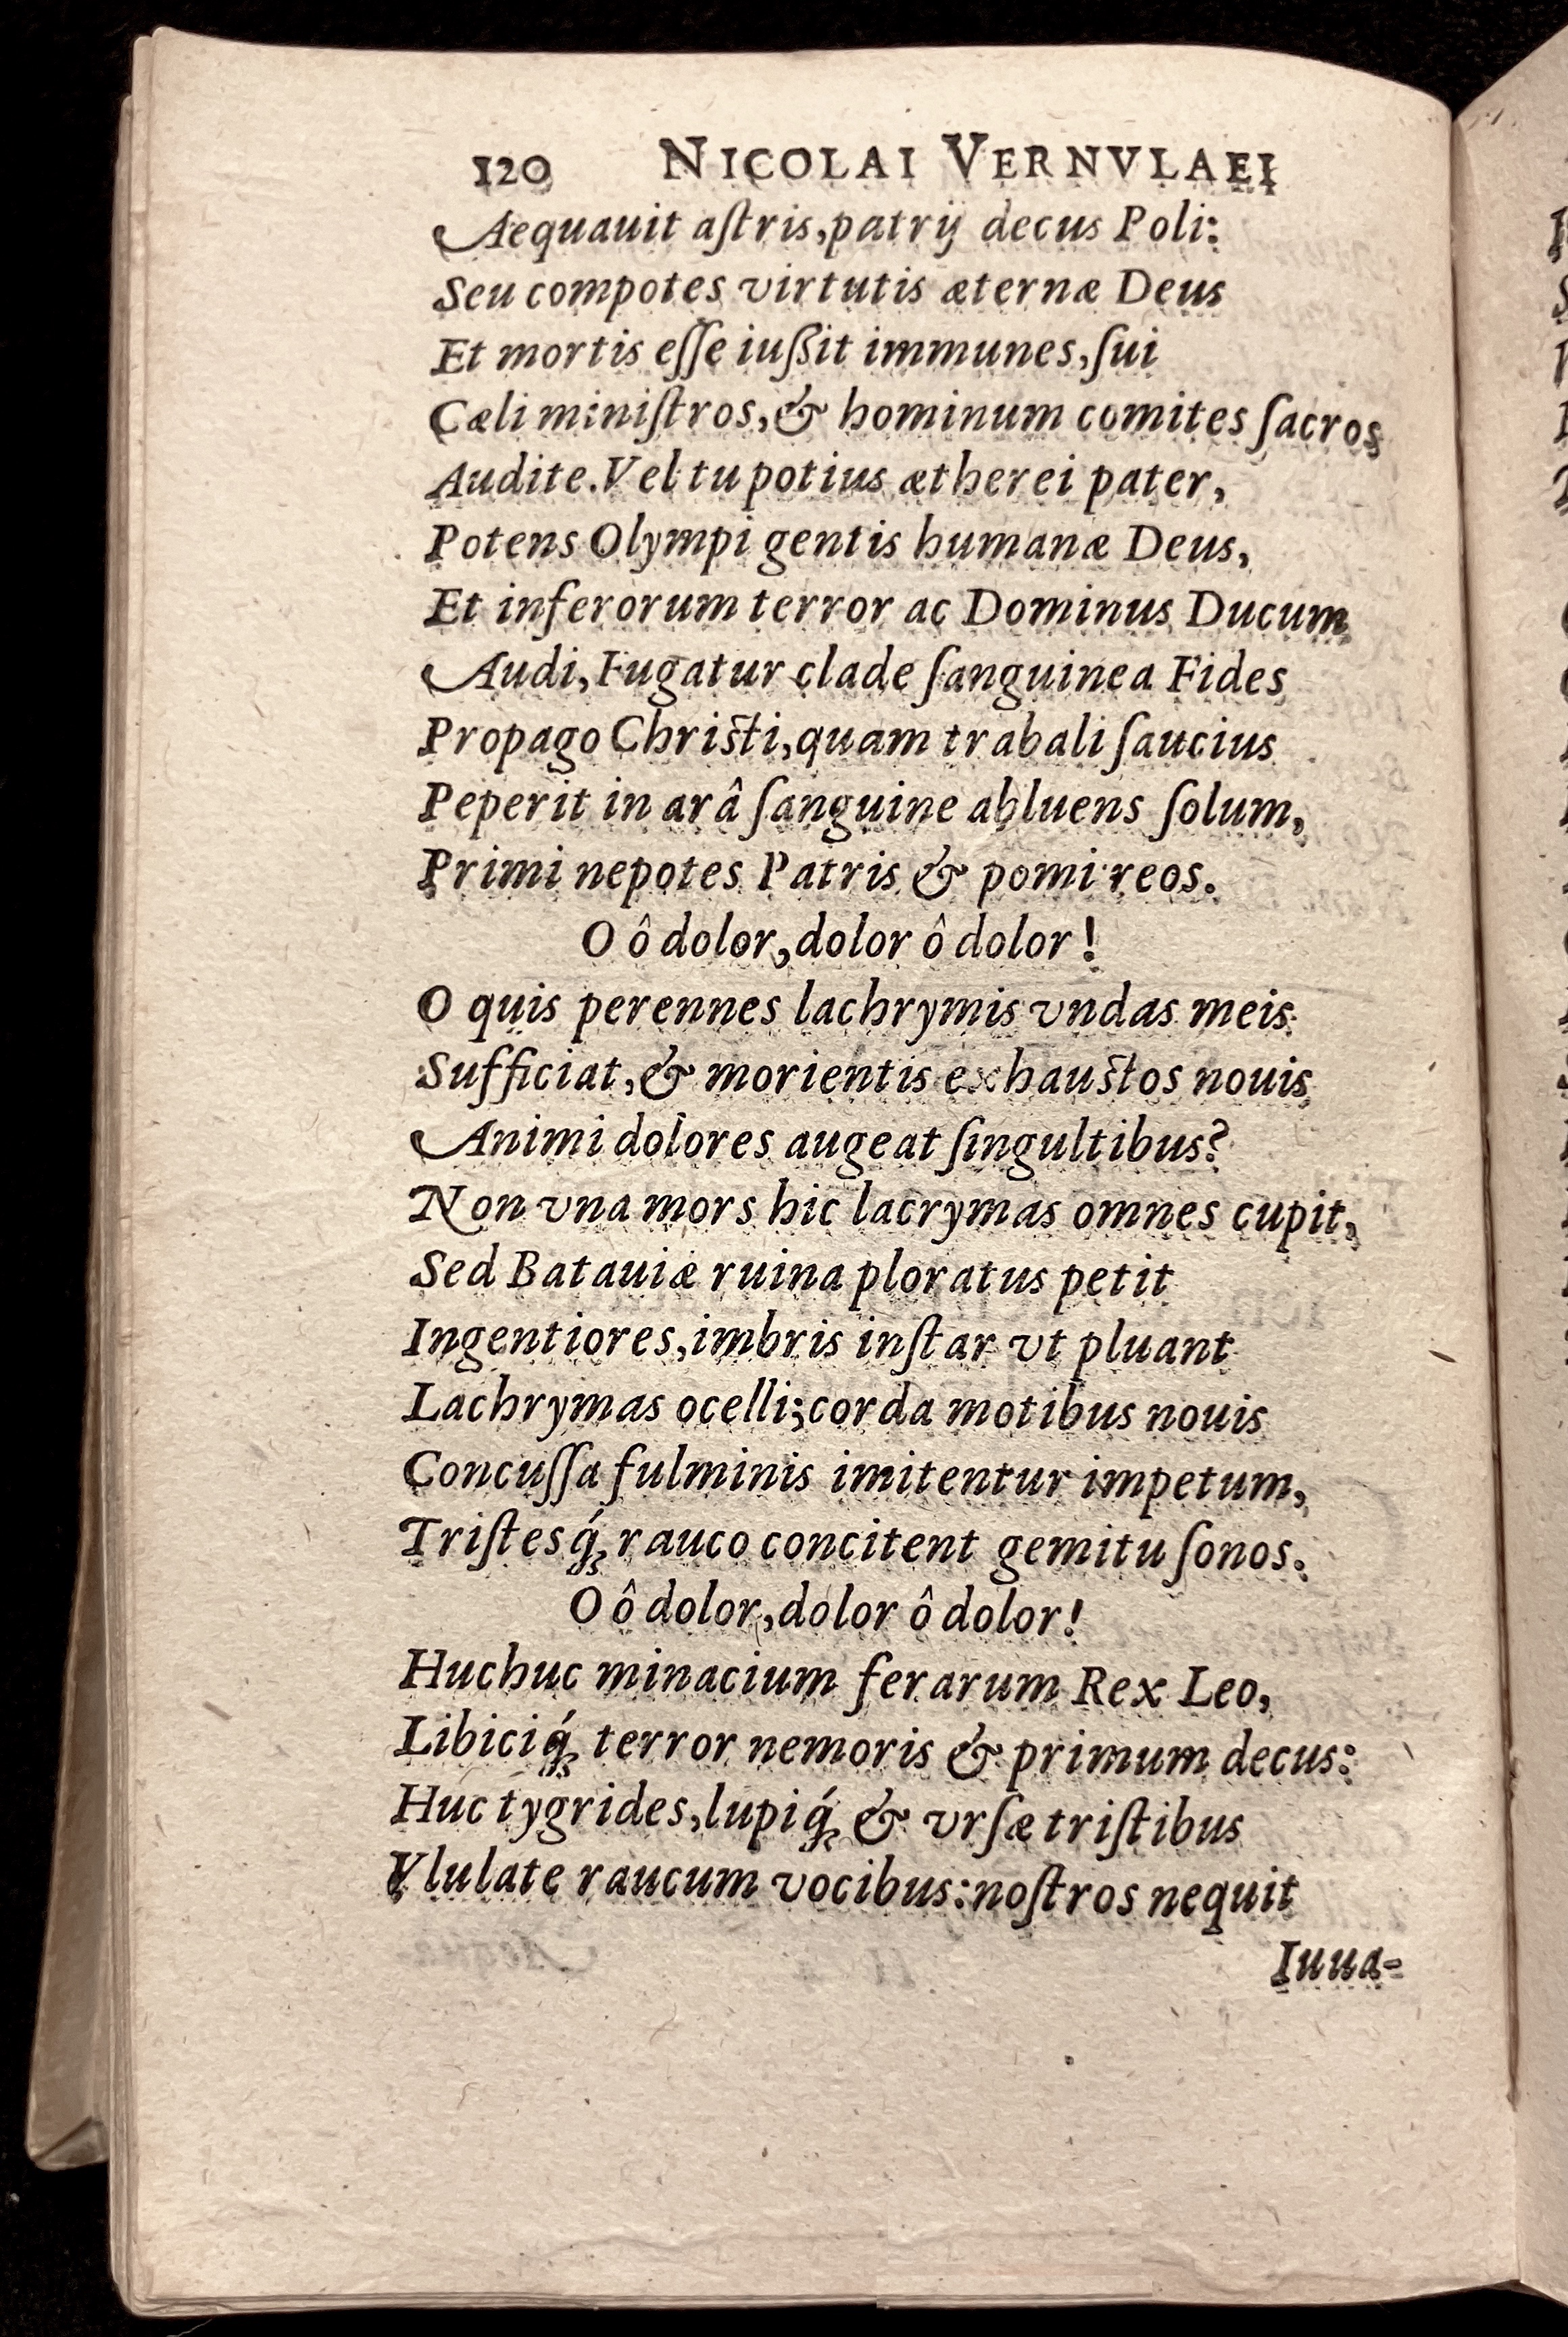 120 NICOLAI VERNVLAEI
Aequauit aſtris, patrij decus Poli:
Seu compotes virtutis æternæ Deus
Et mortis eſſe iuſsit immunes, ſui
Cæli miniſtros, & hominum comites ſacros
Audite. Vel tu potius ætherei pater,
Potens Olympi gentis humanæ Deus,
Et inferorum terror ac Dominus Ducum
Audi, Fugatur clade ſanguinea Fides
Propago Chriſti, quam trabali ſaucius
Peperit in arâ ſanguine abluens ſolum,
Primi nepotes Patris & pomi reos.
O ô dolor, dolor ô dolor!
O quis perennes lachrymis vndas meis
Sufficiat, & morientis exhauſtos nouis
Animi dolores augeat ſingultibus?
Non vna mors hic lacrymas omnes cupit,
Sed Batauiæ ruina ploratus petit
Ingentiores, imbris inſtar vt pluant
Lachrymas ocelli; corda motibus nouis
Concuſſa fulminis imitentur impetum,
Triſtesq́; rauco concitent gemitu ſonos.
O ô dolor, dolor ô dolor!
Huc huc minacium ferarum Rex Leo,
Libiciq́; terror nemoris & primum decus:
Huc tygrides, lupiq́; & vrſæ triſtibus
Vlulate raucum vocibus: noſtros nequit
Iuua-